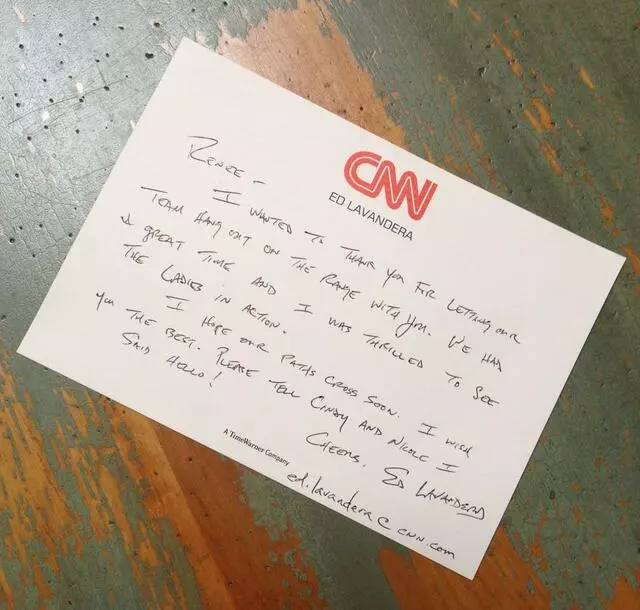 CNN
ED LAVANDERA
RENEE -
I WANTED TO THANK YOU FOR LETTING OUR
TEAM HANG OUT ON THE RANGE WITH YOU. WE HAD
A GREAT TIME AND I WAS THRILLED TO SEE
THE LADIES IN ACTION.
I HOPE OUR PATHS CROSS SOON. I WISH
YOU THE BEST. PLEASE TELL CINDY AND NICOLE I
SAID HELLO!
CHEERS, ED LAVANDERA
A TimeWarner Company
ed.lavandera@cnn.com